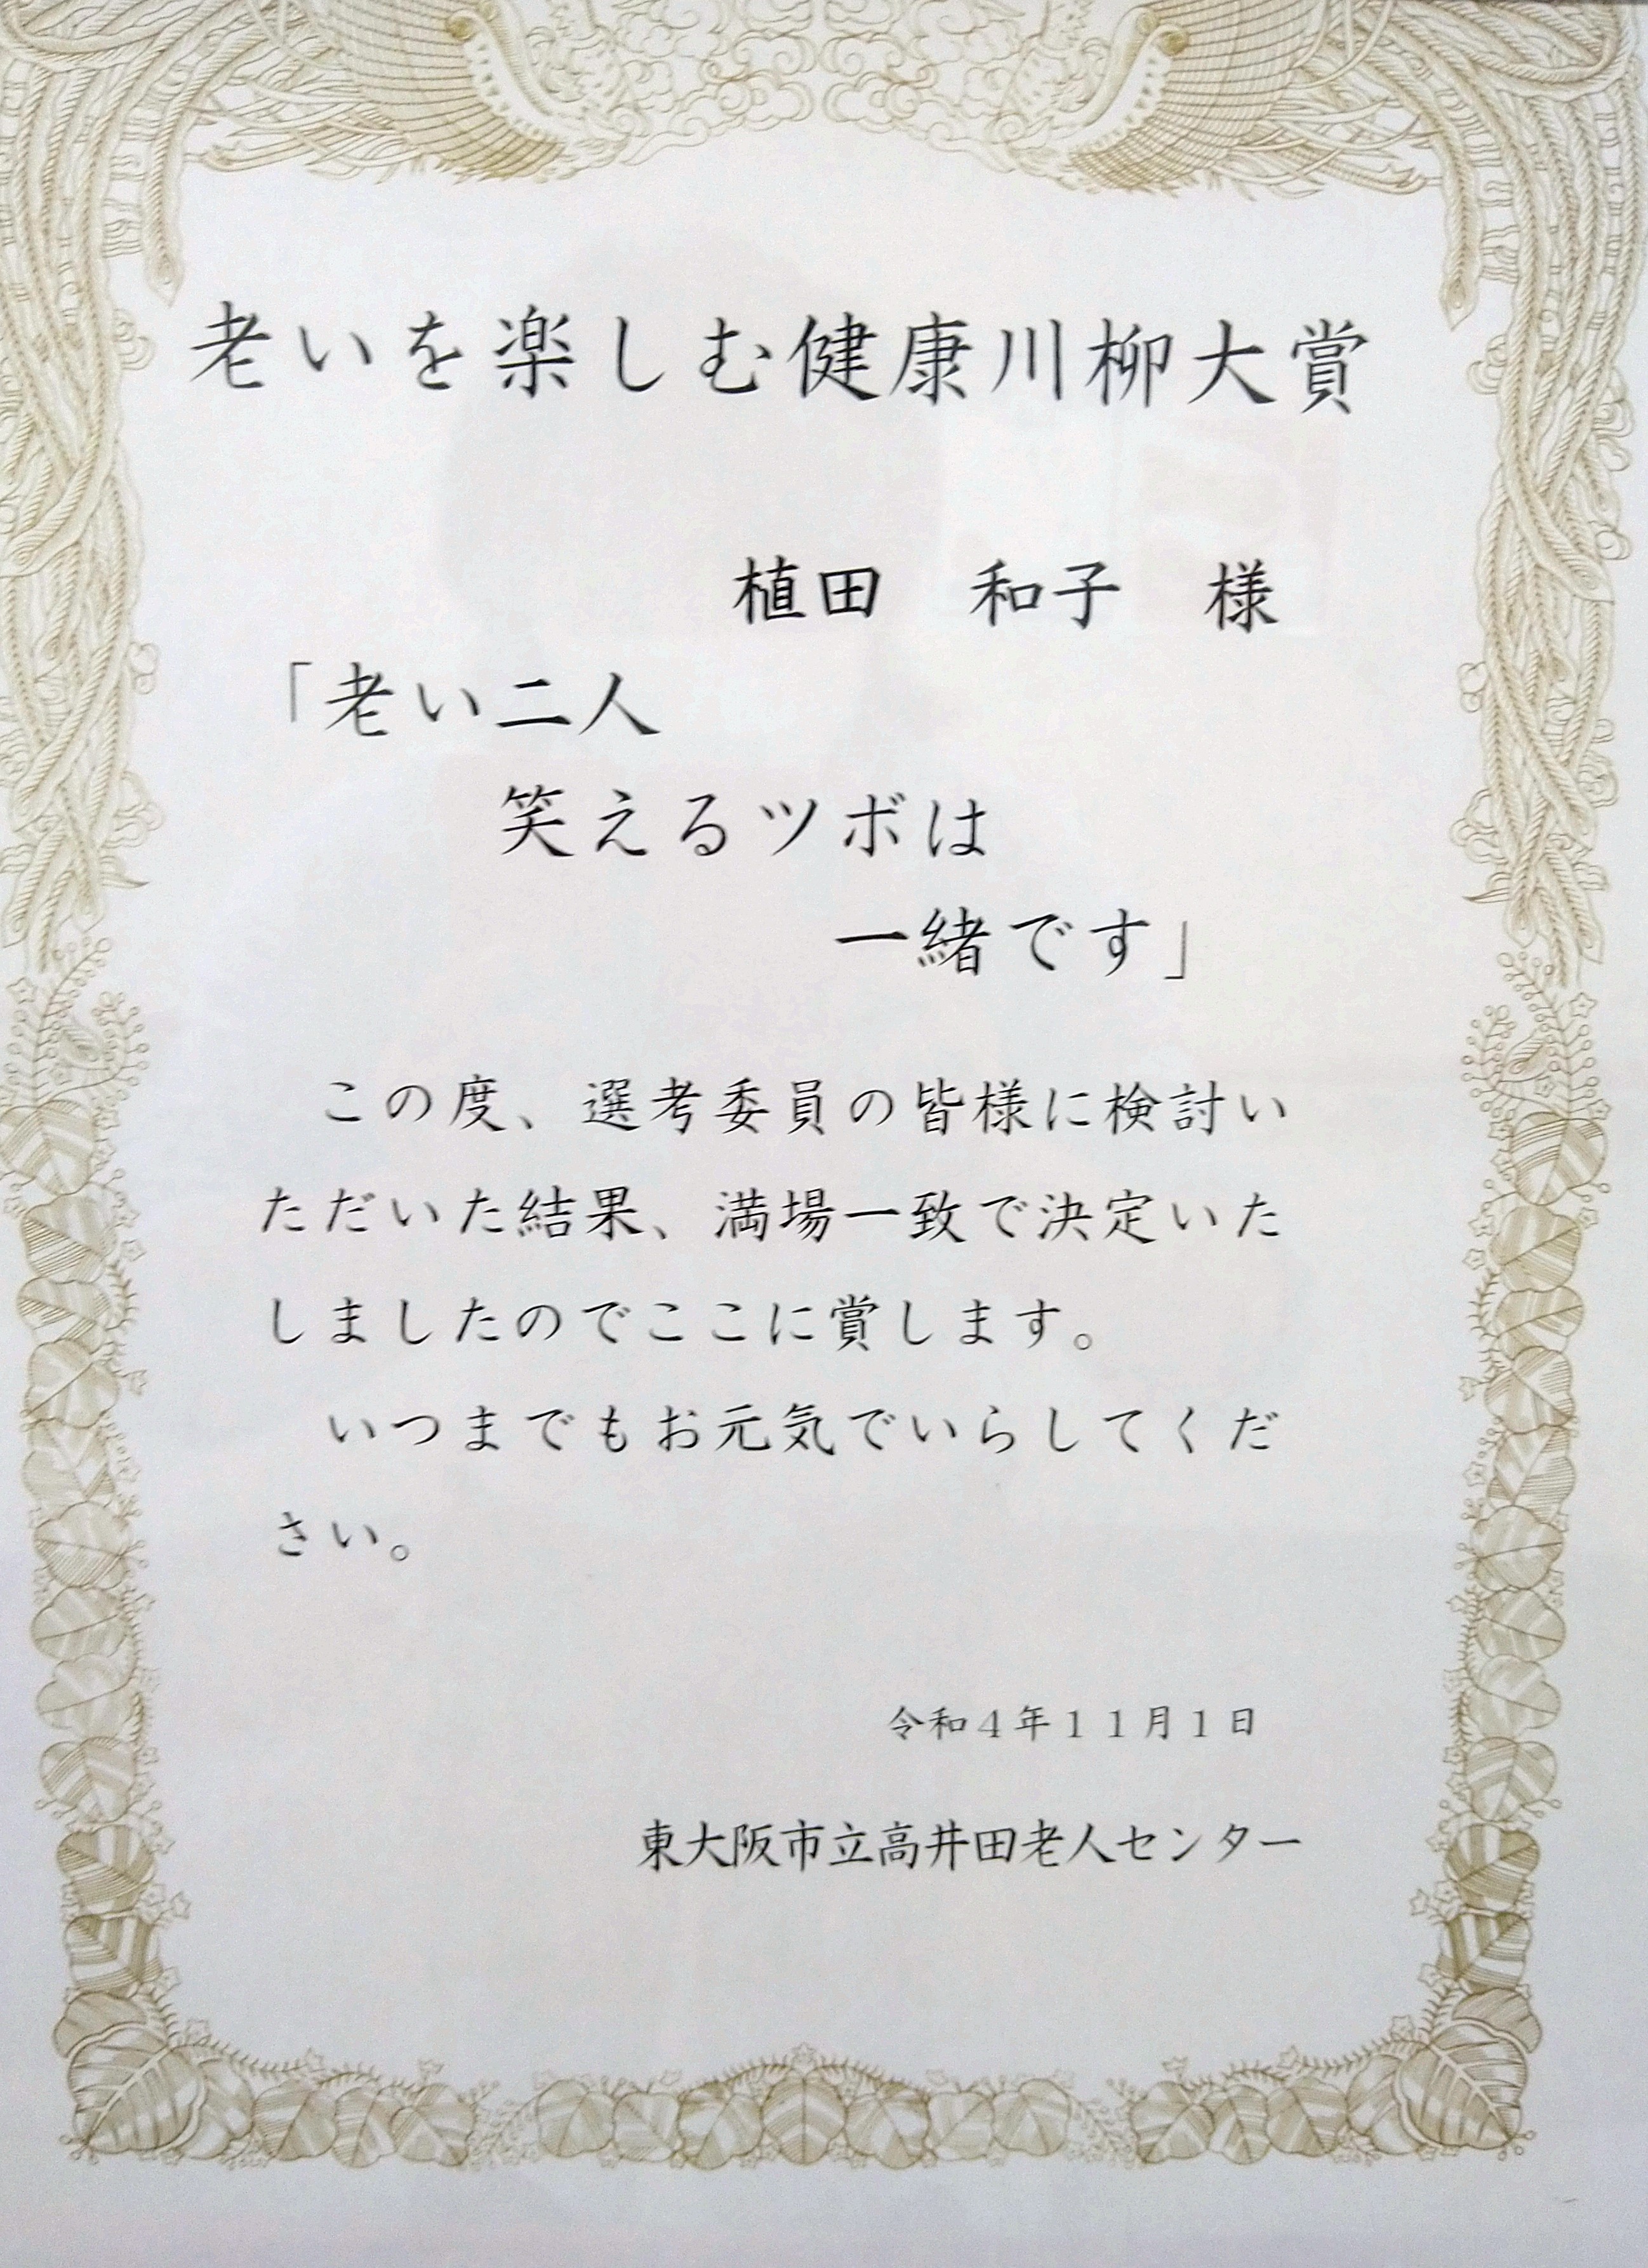 老いを楽しむ健康川柳大賞
植田　和子　様
「老い二人
笑えるツボは
一緒です」
この度、選考委員の皆様に検討い
ただいた結果、満場一致で決定いた
しましたのでここに賞します。
いつまでもお元気でいらしてくだ
さい。
令和４年１１月１日
東大阪市立高井田老人センター